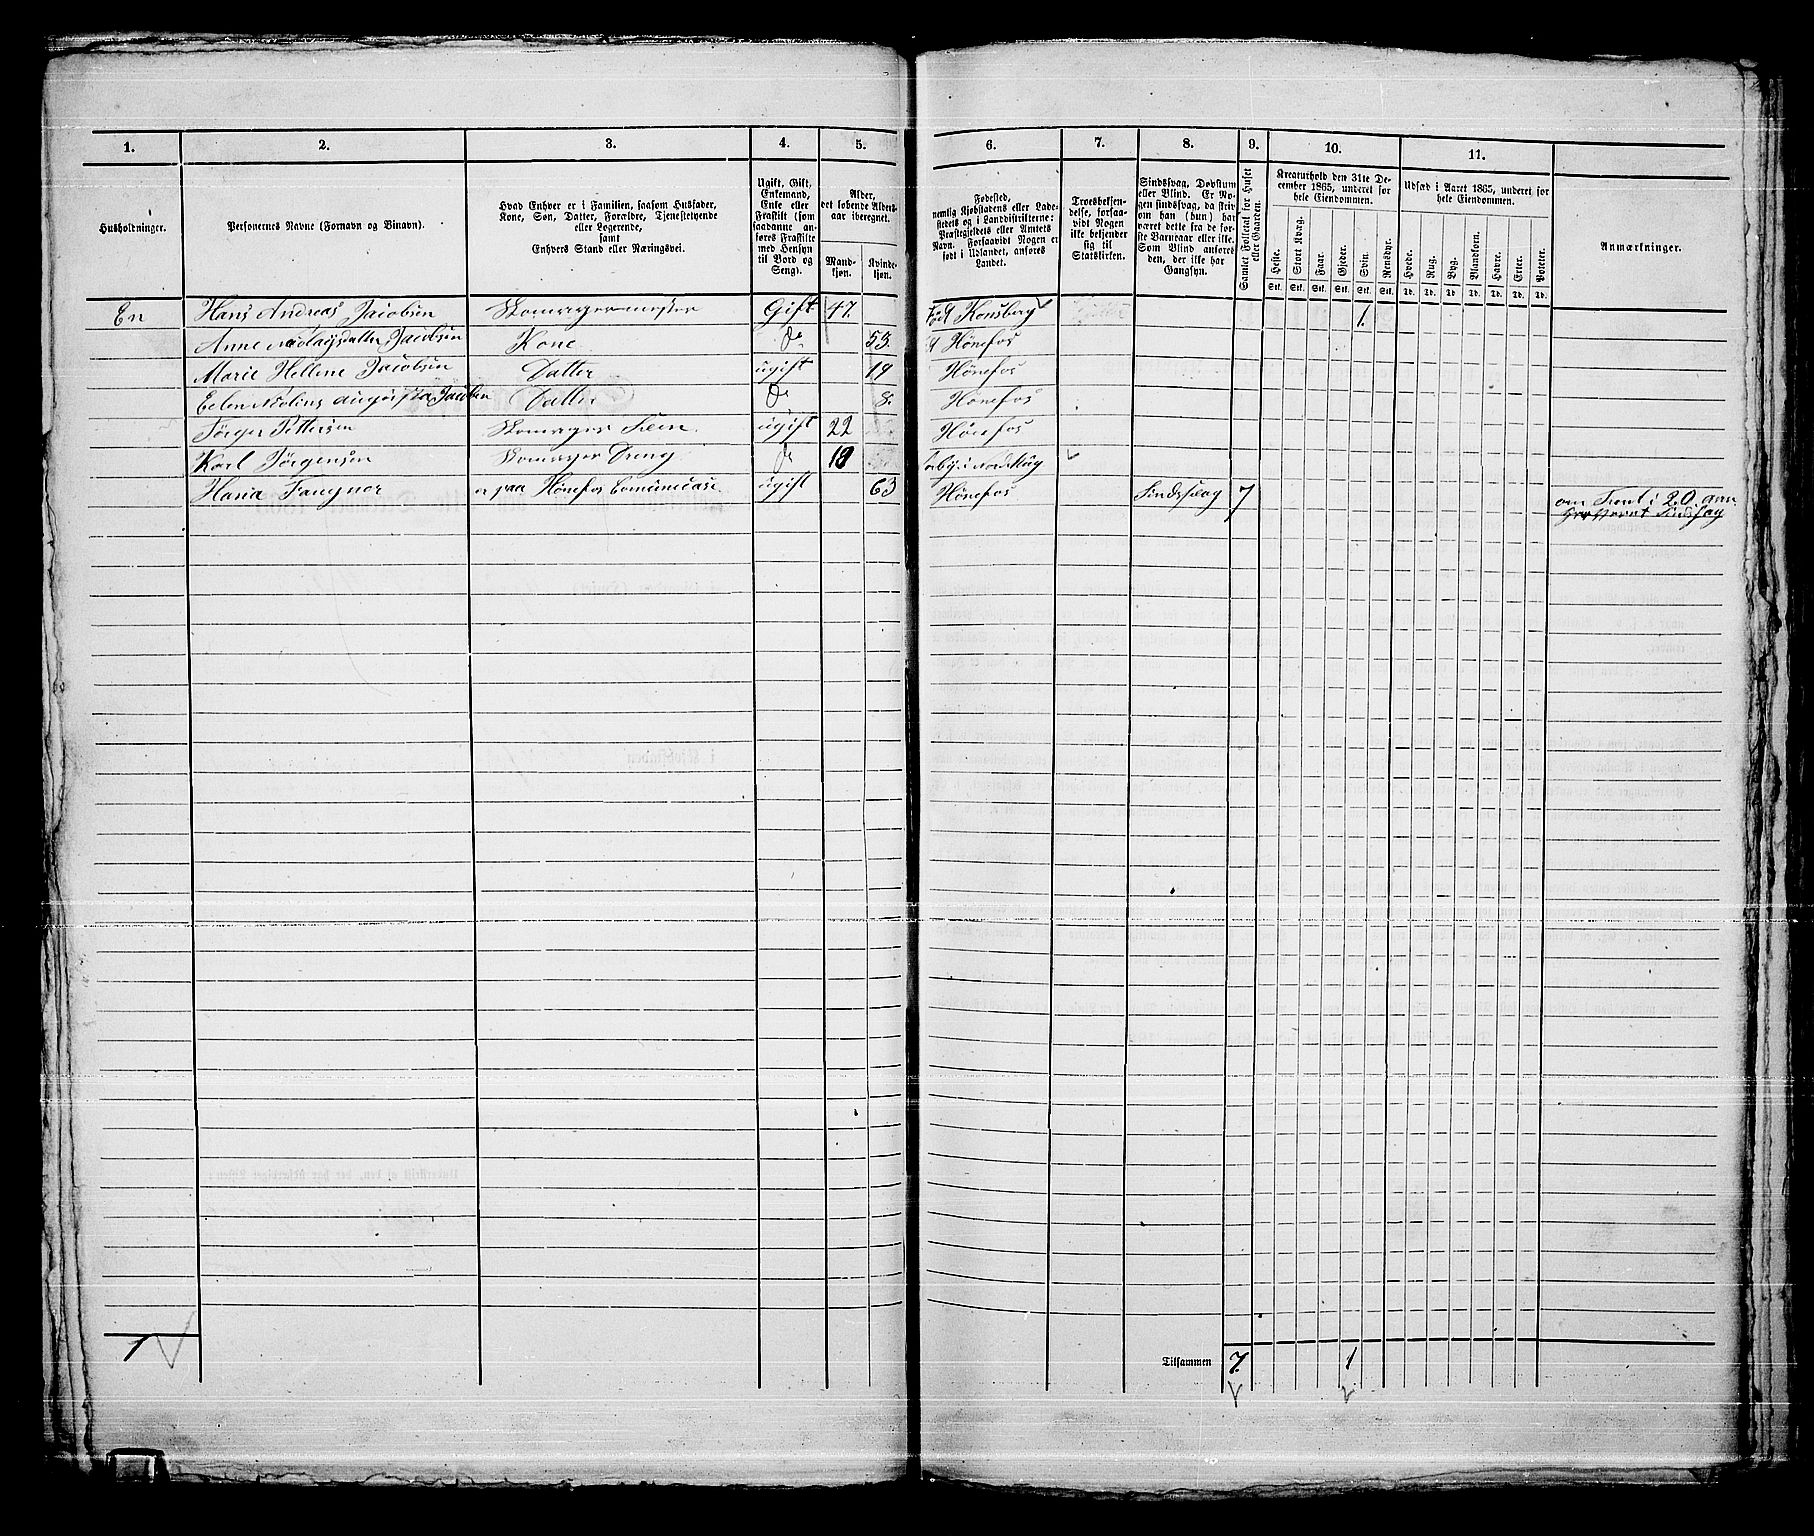 1. 2. 3. 4. 5. 6. 7. 8. 9. 10. 11.
Husholdninger.
Personernes Navne (Fornavn og Binavn).
Hvad Enhver er i Familien, saasom Husfader,
Kone, Søn, Datter, Forældre, Tjenestetyende
eller Logerende,
samt
Enhvers Stand eller Næringsvei.
Ugift, Gift,
Enkemand,
Enke eller
Fraskilt (som
saadanne an-
føres Fraskilte
med Hensyn
til Bord og
Seng).
Alder,
det løbende Alders-
aar iberegnet.
Mand-
kjøn.
Kvinde-
kjøn.
Fødested,
nemlig Kjøbstadens eller Lade-
stedets og i Landdistrikterne:
Præstegjeldets eller Amtets
Navn. Forsaavidt Nogen er
født i Udlandet, anføres
Landet.
Troesbekjen-
delse, forsaa-
vidt Nogen
ikke bekjender
sig til
Statskirken.
Sindssvag, Døvstum
eller Blind. Er No-
gen sindssvag, da skriv
om han (hun) har
været dette fra de før-
ste Barneaar eller ikke.
Som Blind anføres
den, der ikke har
Gangsyn.
Samlet Folketal for Huset
eller Gaarden.
Kreaturhold den 31te De-
cember 1865, underet for
hele Eiendommen.
Heste. Stort Kvæg. Faar. Gjeder. Svin. Rensdyr.
Stk. Stk. Stk. Stk. Stk. Stk.
Udsæd i Aaret 1865, underet for
hele Eiendommen.
Hvede. Rug. Byg. Blandkorn. Havre. Erter. Poteter.
Td. Td. Td. Td. Td. Td. Td.
Anmærkninger.
En Hans Andreas Jacobsen Skomagermester Gift 47. Født Konsberg 1.
Anne Jacobsen Kone do 53. Hønefos
Marie Hellene Jacobsen Datter ugift 19 Hønefos
Jacobsen Datter do 8. Hønefos
Jørger Pettersen Skomager ugift 22 Hønefos
Karl Jørgensen Skomager Dreng do 18
er paa Hønefos ugift 63 Hønefos Sindssvag 7
i 20 aar
1
Tilsammen 7. 1